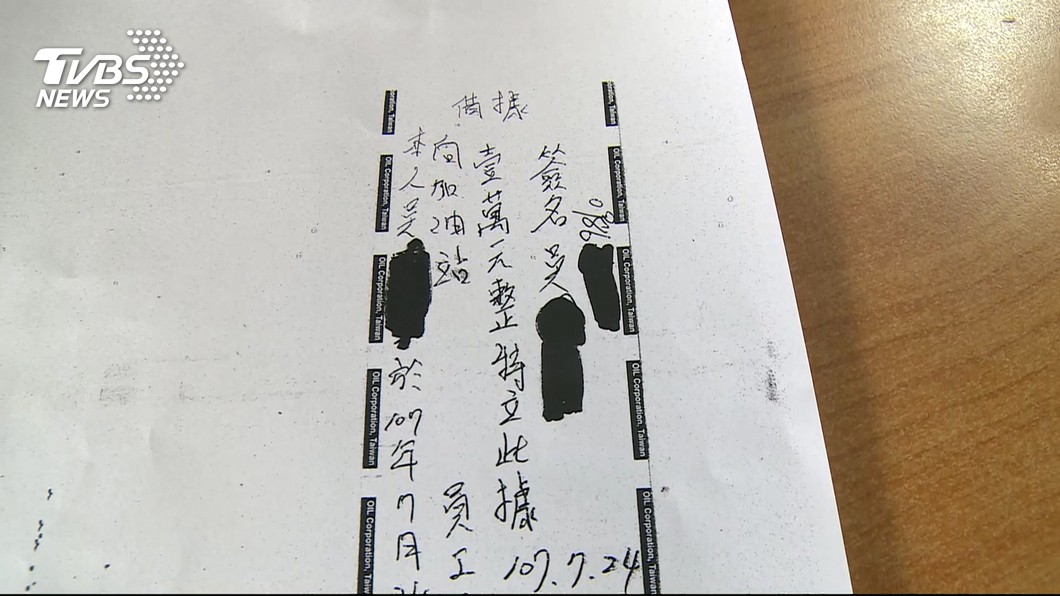 TVBS
NEWS
借據
本人吳
於107年7月24
向加油站
員工
壹萬元整特立此據
簽名吳
0986
107.7.24
oration, Taiwan
OIL Corporation, Taiwan
OIL Corporation, Taiwan
OIL Corporation, Taiwan
OIL Corporation, Taiwan
oration, Taiwan
OIL Corporation, Taiwan
OIL Corporation, Taiwan
OIL Corporation, Taiwan
OIL Corporation, Taiwan